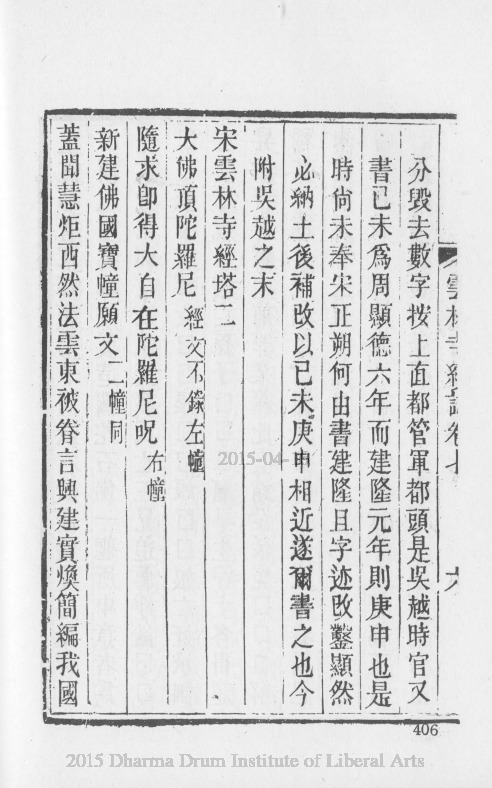 雲林寺續誌卷七 六
分毀去數字按上面都管軍都頭是吳越時官又
書已未爲周顯德六年而建隆元年則庚申也是
時尙未奉宋正朔何由書建隆且字迹改鑿顯然
必納土後補改以已未庚申相近遂爾書之也今
附吳越之末
宋雲林寺經塔二
大佛頂陀羅尼 經文不錄左幢
隨求卽得大自在陀羅尼呪 右幢
新建佛國寶幢願文 二幢同
蓋聞慧炬西然法雲東被眷言興建實煥簡編我國
406
2015-04-
2015 Dharma Drum Institute of Liberal Arts